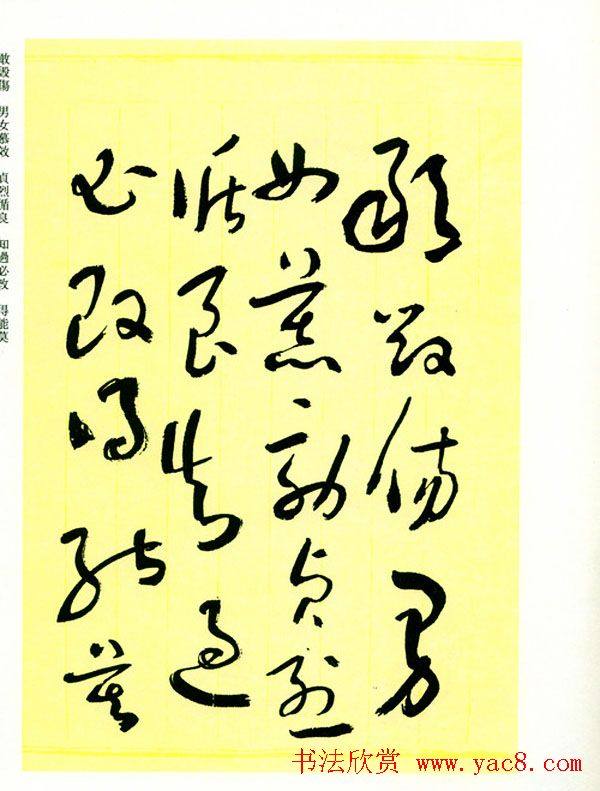 敢毁傷男
女慕效貞烈
循良知過
必改得能莫
敢毁傷 男女慕效 貞烈循良 知過必改 得能莫
书法欣赏 www.yac8.com